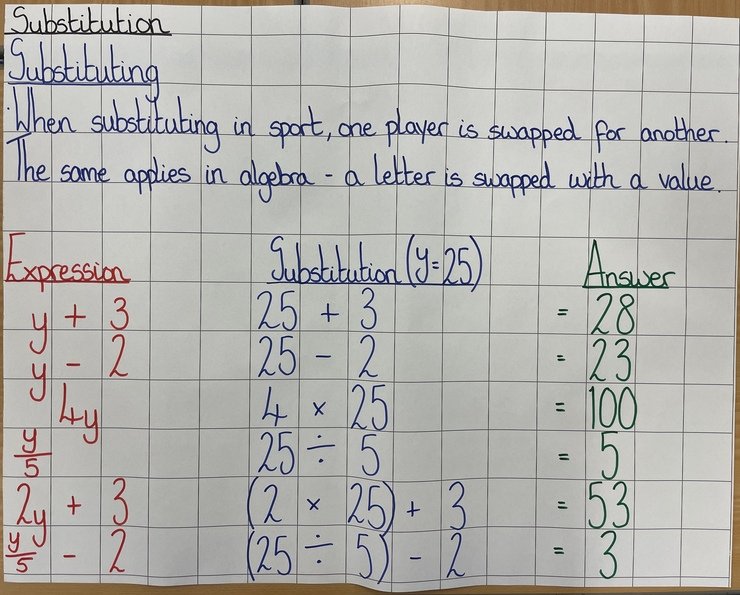 Substitution
Substituting
When substituting in sport, one player is swapped for another.
The same applies in algebra - a letter is swapped with a value.
Expression Substitution (y=25) Answer
y + 3 25 + 3 = 28
y - 2 25 - 2 = 23
4y 4 × 25 = 100
y/5 25 ÷ 5 = 5
2y + 3 (2 × 25) + 3 = 53
y/5 - 2 (25 ÷ 5) - 2 = 3